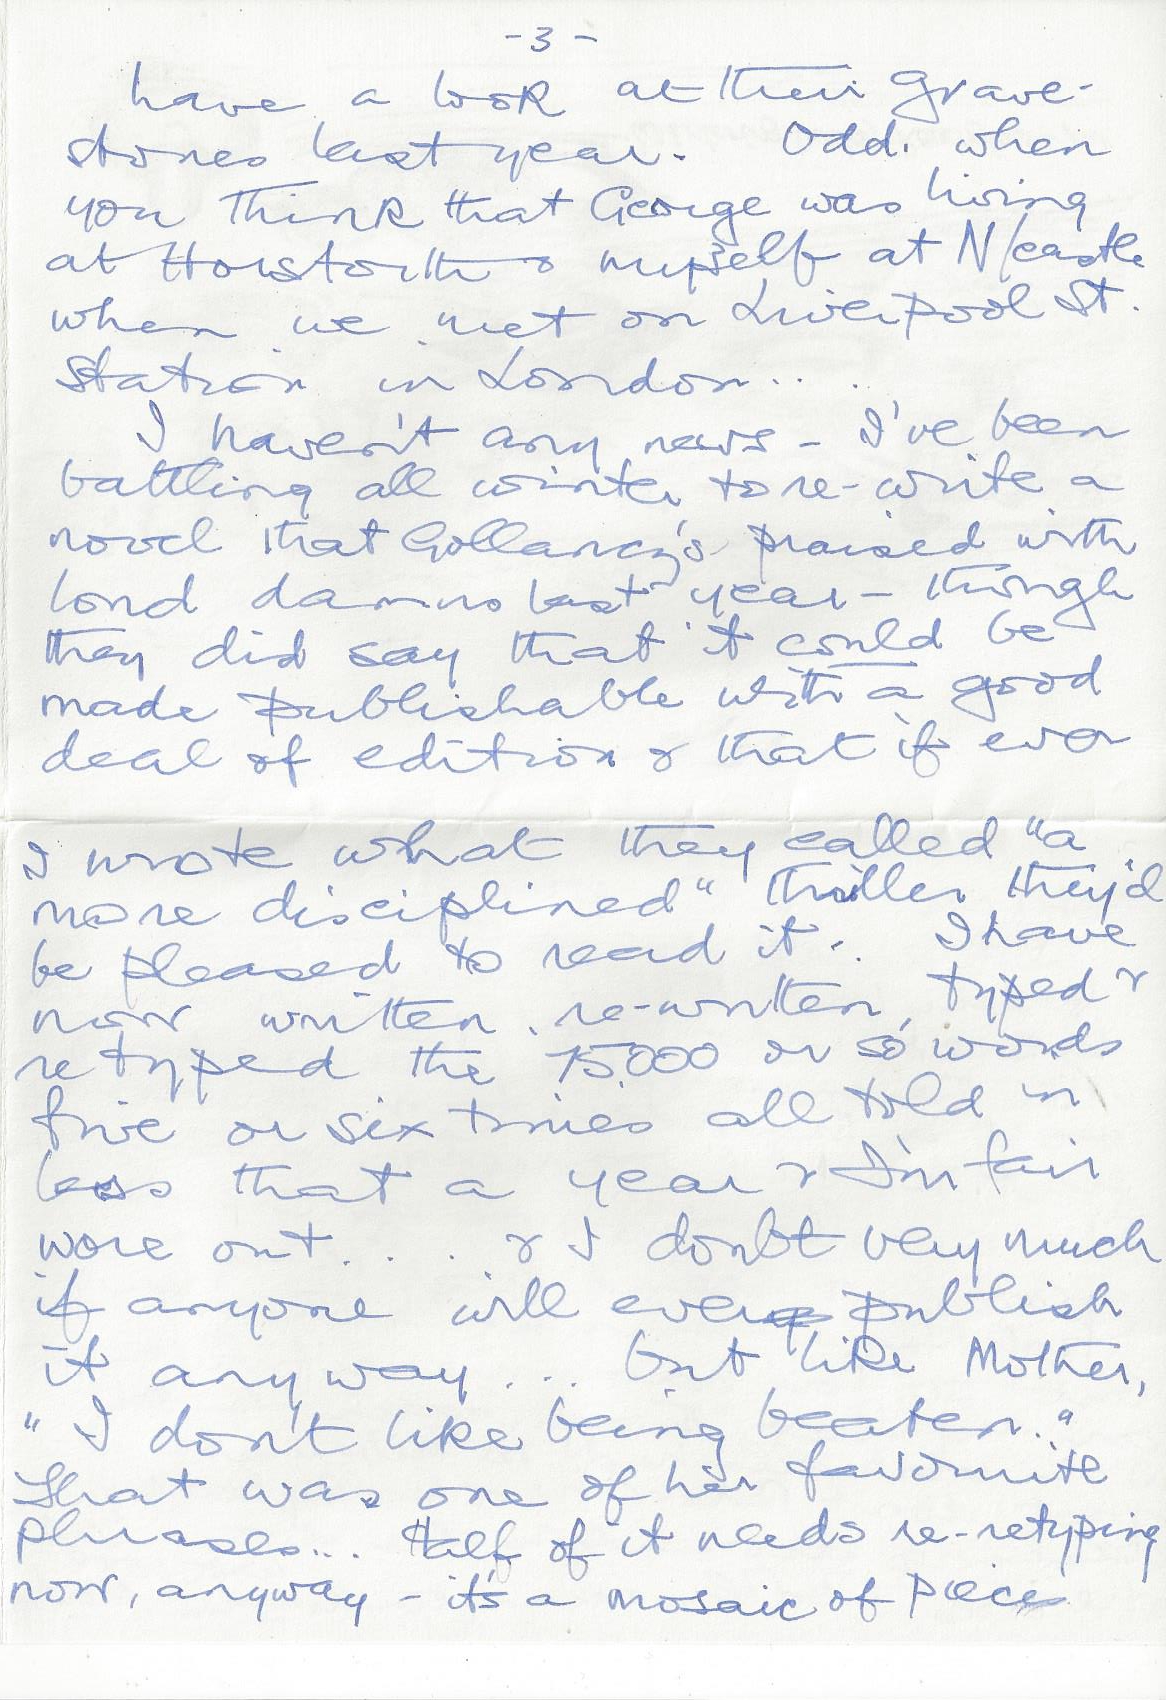 -3-
have a look at their grave-
stones last year. Odd. when
you think that George was living
at Horsforth & myself at N/castle
when we met on Liverpool St.
Station in London....
I haven't any news - I've been
battling all winter to re-write a
novel that Gollancz's praised with
loud damns last year - though
they did say that it could be
made publishable with a good
deal of edition & that if ever
I wrote what they called "a
more disciplined" thriller they'd
be pleased to read it. I have
now written, re-written, typed &
retyped the 75,000 or so words
five or six times all told in
less that a year & I'm fair
wore out.... & I doubt very much
if anyone will ever publish
it anyway.... but like Mother,
"I don't like being beaten."
That was one of her favourite
phrases... Half of it needs re-retyping
now, anyway - it's a mosaic of pieces